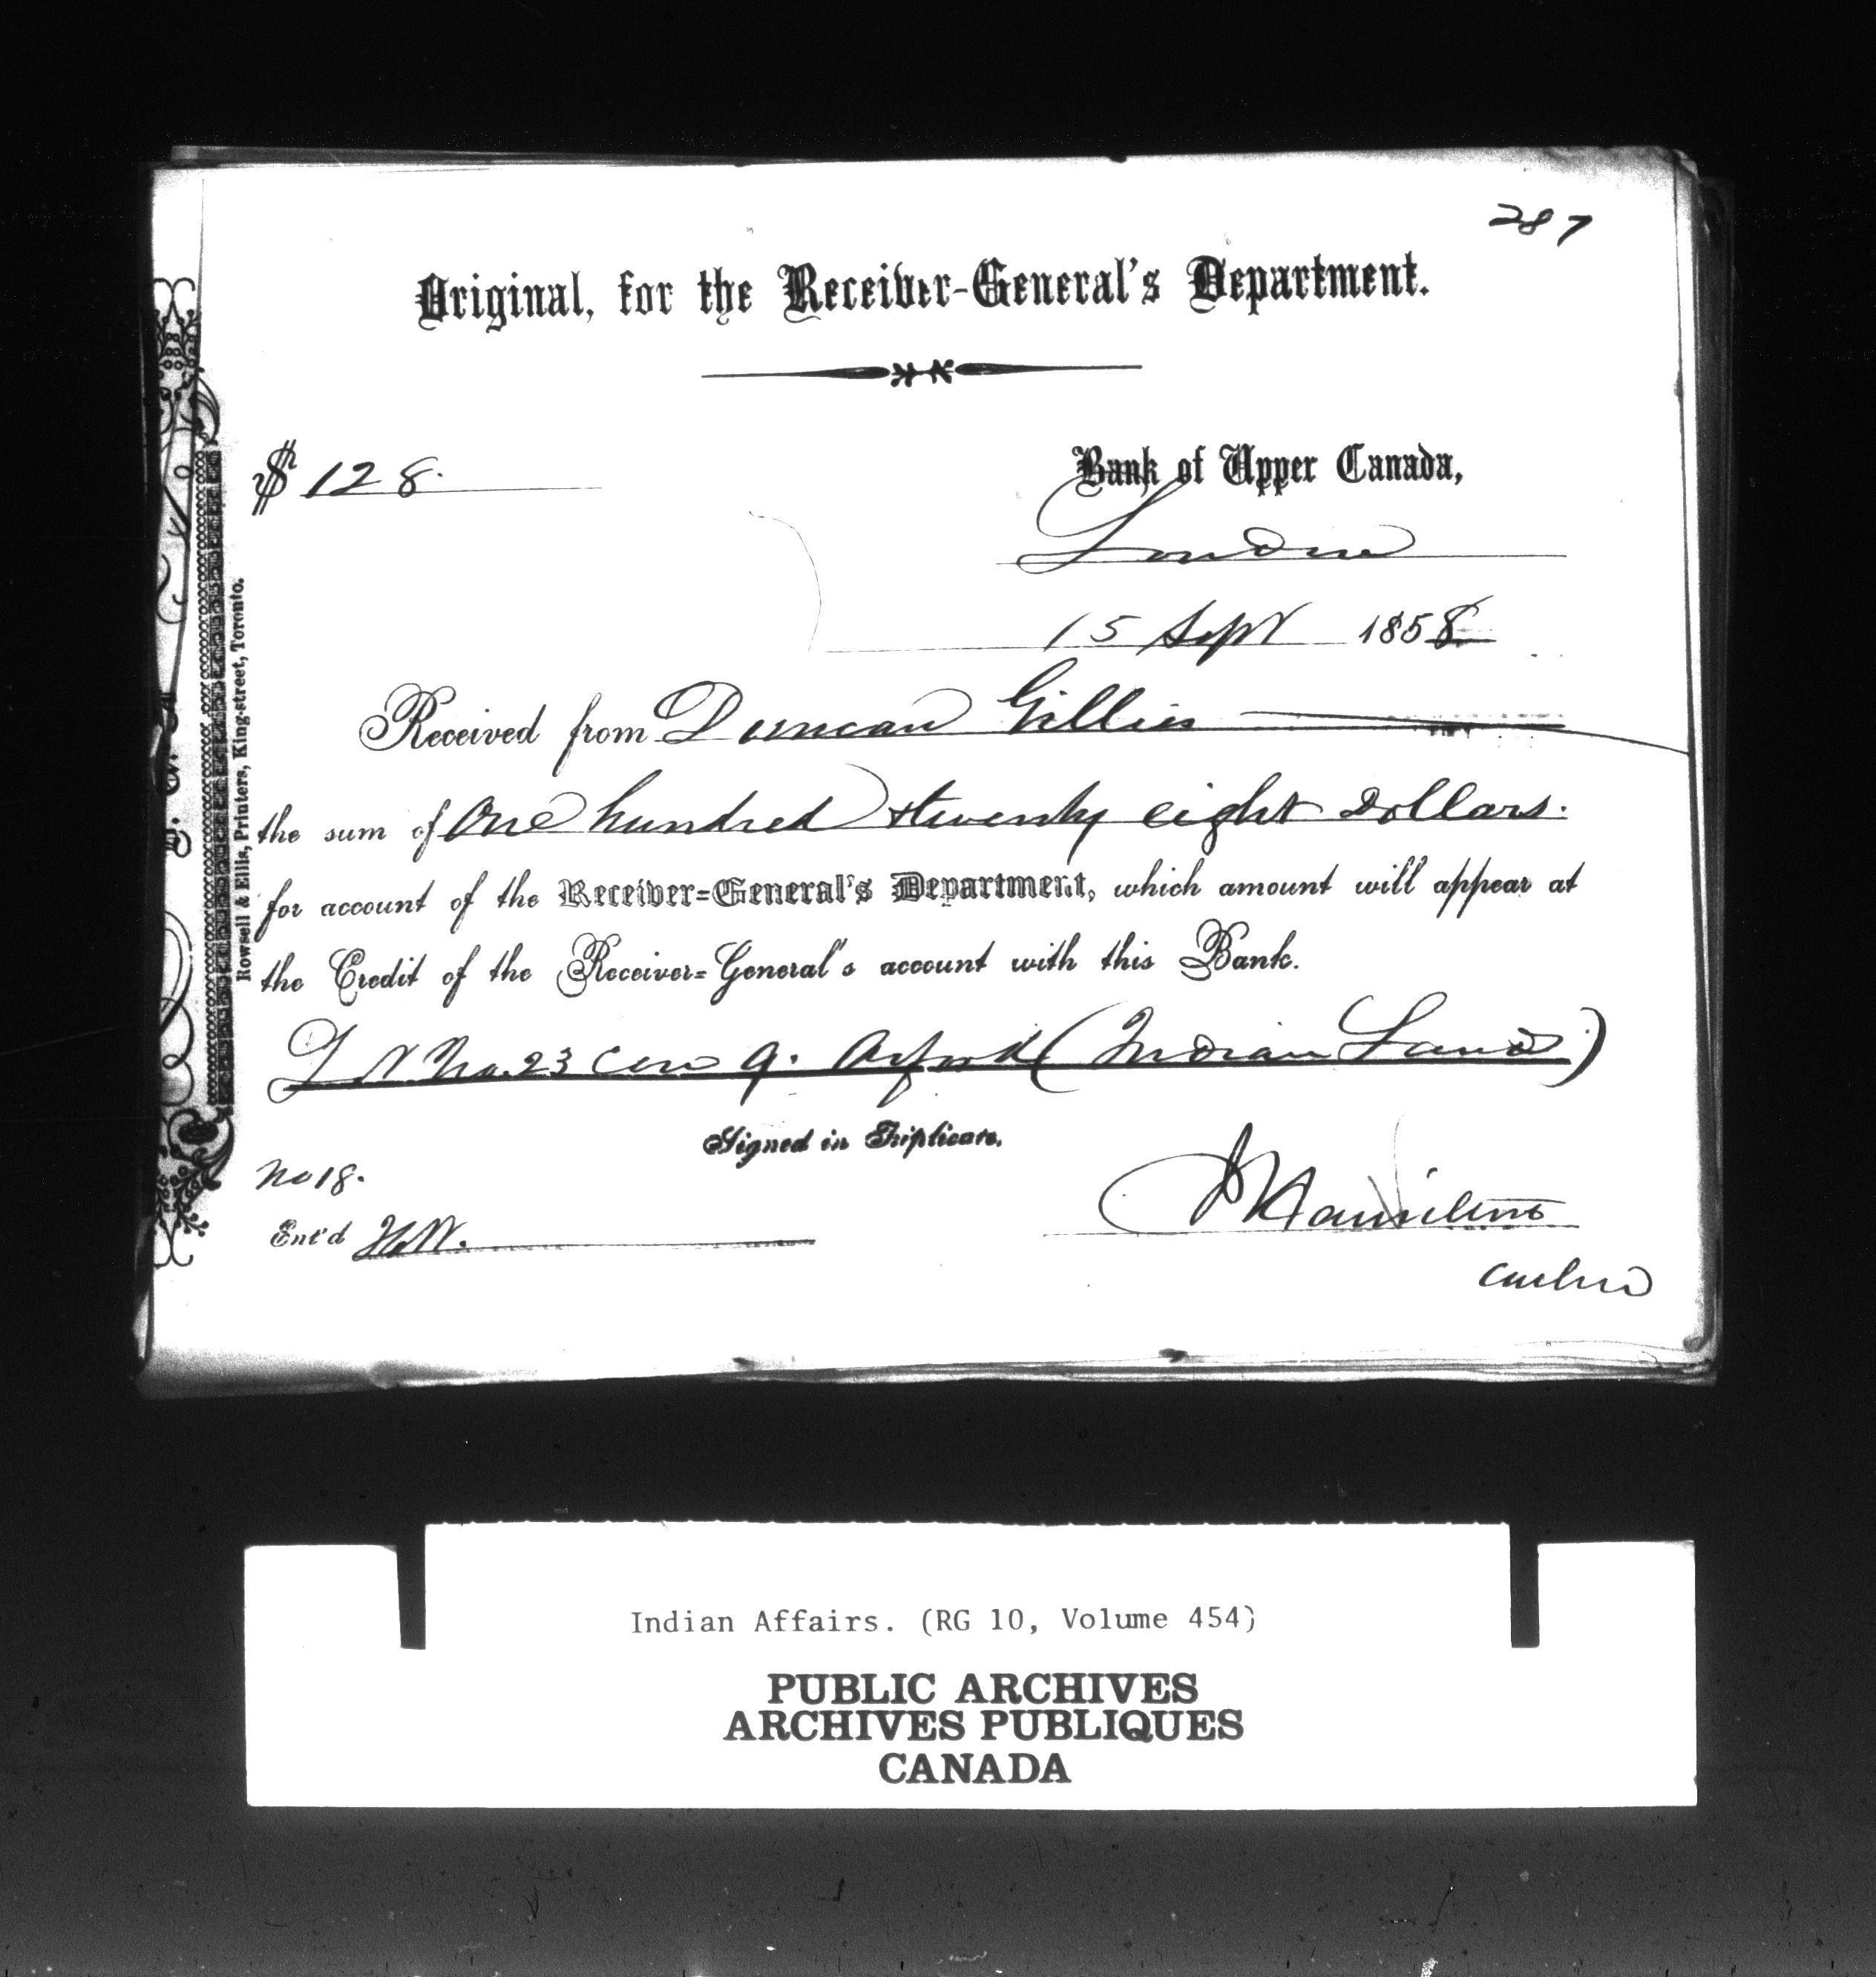 287
Original, for the Receiver-General's Department.
$ 128.
Bank of Upper Canada,
London
15 Sept 1858
Received from Duncan Gillies
the sum of One hundred & twenty eight Dollars.
for account of the Receiver-General's Department, which amount will appear at
the Credit of the Receiver-General's account with this Bank.
Lt No. 23 Con 9. Orford (Indian Land)
Signed in Triplicate.
No 18.
Ent'd
Hamilton
Cashier
Rowsell & Ellis, Printers, King-street, Toronto.
Indian Affairs. (RG 10, Volume 454)
PUBLIC ARCHIVES
ARCHIVES PUBLIQUES
CANADA